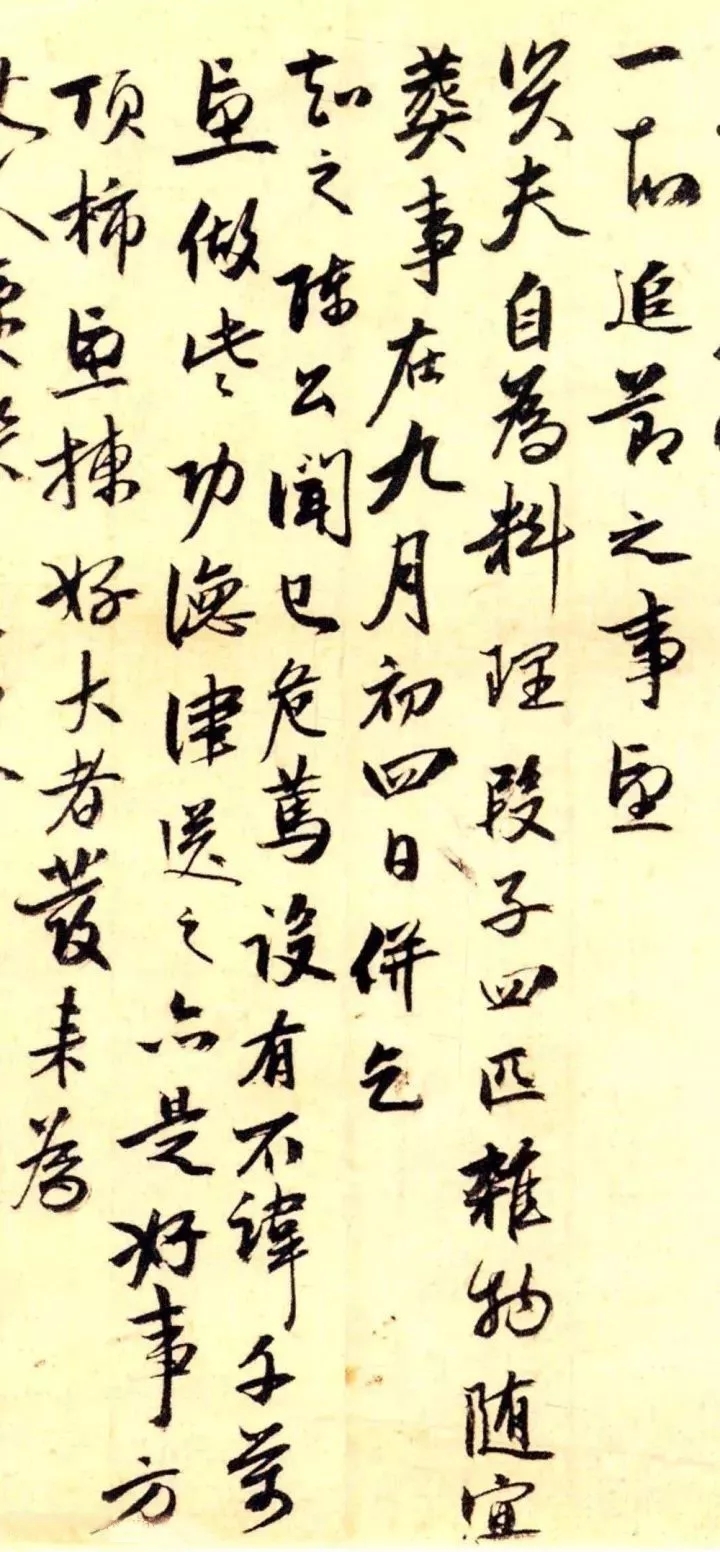 一哥追節之事望
夫自為料理段子四匹雜物随宜
葬事在九月初四日併乞
知之陳公聞已危篤設有不諱千萬
望做些功德津送之亦是好事方
頂柿望揀好大者發來為